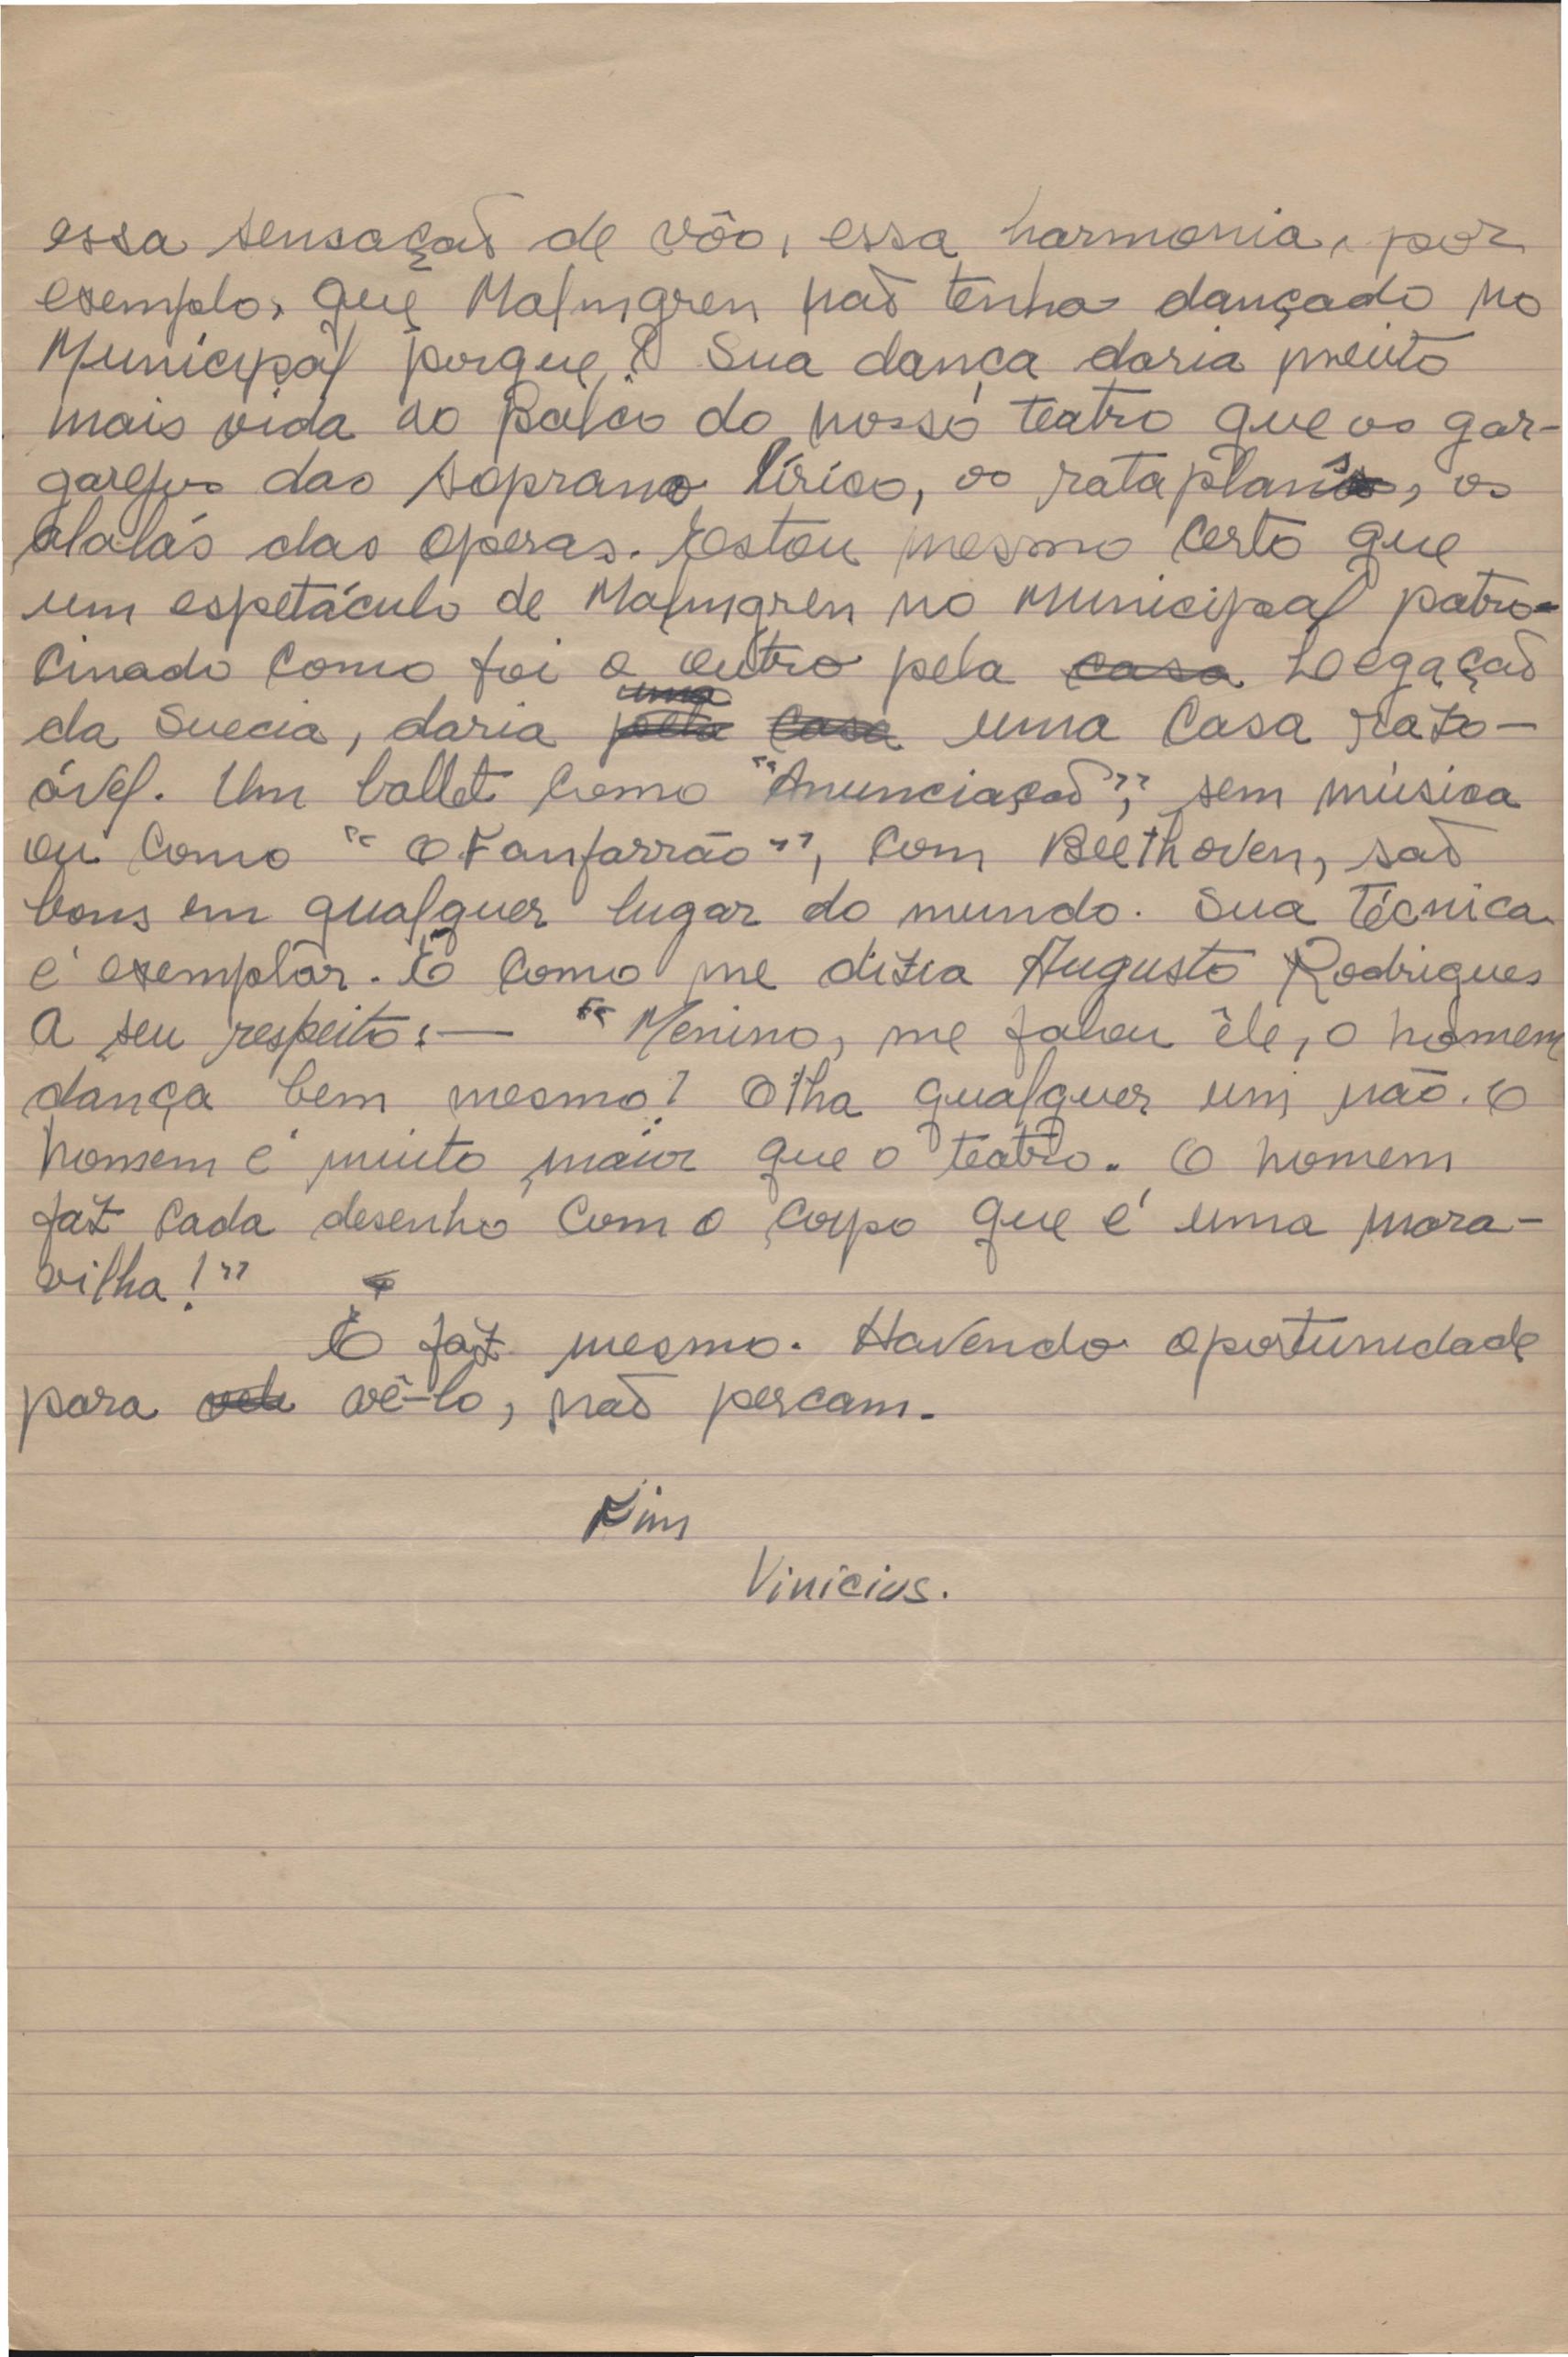 essa sensação de vôo, essa harmonia, por
exemplo, que Malmgren não tenha dançado no
Municipal porque? Sua dança daria muito
mais vida ao palco do nosso teatro que os gar-
garejos das soprano lírico, os rataplans, os
alalás das operas. Estou mesmo certo que
um espetáculo de Malmgren no Municipal patro-
cinado como foi o outro pela casa Legação
uma
da Suecia, daria pela casa uma casa razo-
ável. Um ballet como "Anunciação", sem música
ou como "O Fanfarrão", com Beethoven, são
bons em qualquer lugar do mundo. Sua técnica
é exemplar. É como me dizia Augusto Rodrigues
a seu respeito: — "Menino, me falou êle, o homem
dança bem mesmo! Olha qualquer um não. O
homem é muito maior que o teatro. O homem
faz cada desenho com o corpo que é uma mara-
vilha!"
E faz mesmo. Havendo oportunidade
para vê-lo, não percam.
Fim
Vinicius.